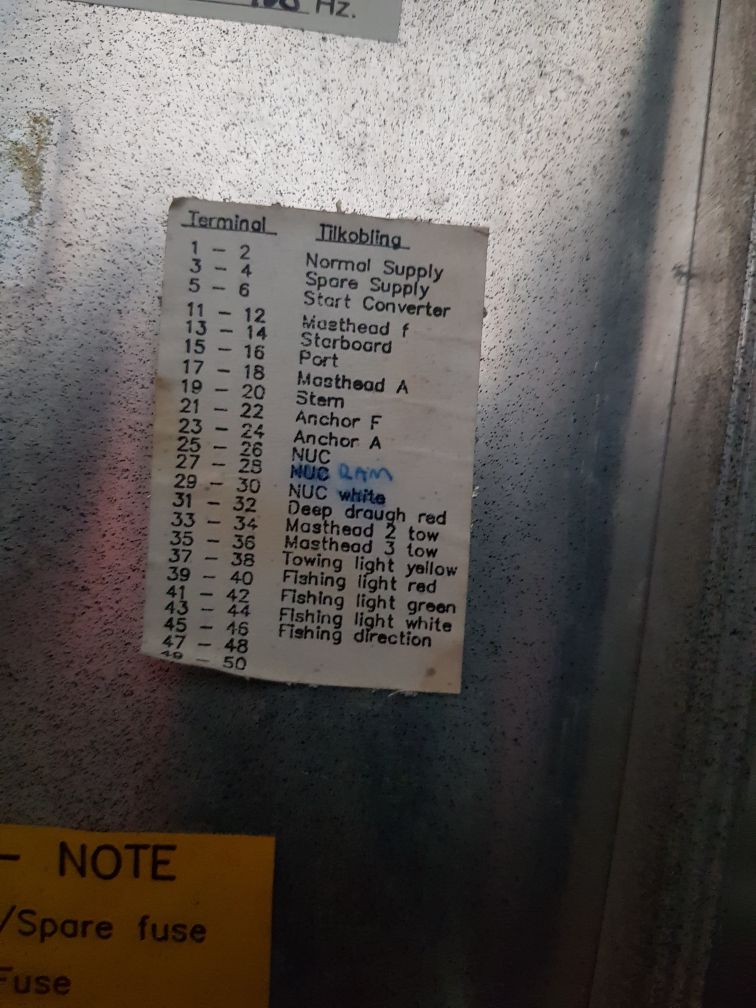 Hz.
Terminal Tilkobling
1 - 2 Normal Supply
3 - 4 Spare Supply
5 - 6 Start Converter
11 - 12 Masthead f
13 - 14 Starboard
15 - 16 Port
17 - 18 Masthead A
19 - 20 Stern
21 - 22 Anchor F
23 - 24 Anchor A
25 - 26 NUC
27 - 28 NUC RAM
29 - 30 NUC white
31 - 32 Deep draugh red
33 - 34 Masthead 2 tow
35 - 36 Masthead 3 tow
37 - 38 Towing light yellow
39 - 40 Fishing light red
41 - 42 Fishing light green
43 - 44 Fishing light white
45 - 46 Fishing direction
47 - 48
49 - 50
- NOTE
/Spare fuse
Fuse